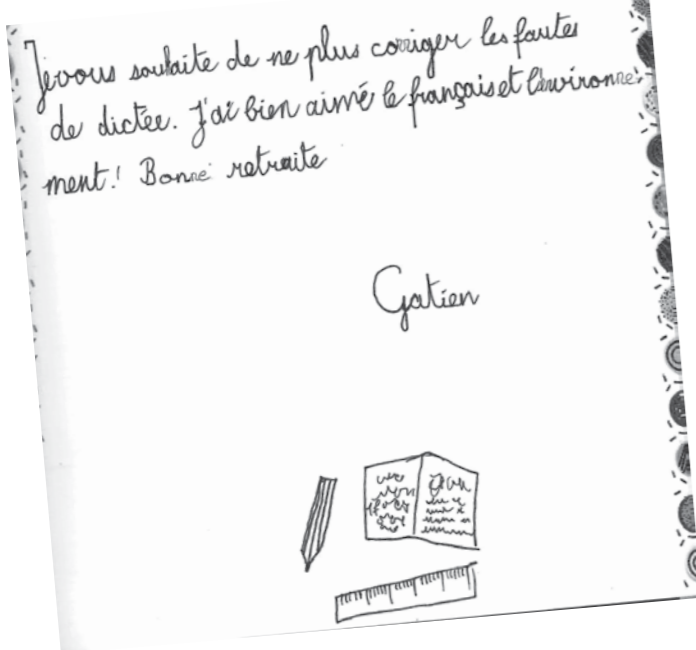 Je vous souhaite de ne plus corriger les fautes
de dictée. J'ai bien aimé le français et l'environne-
ment! Bonne retraite
Gatien